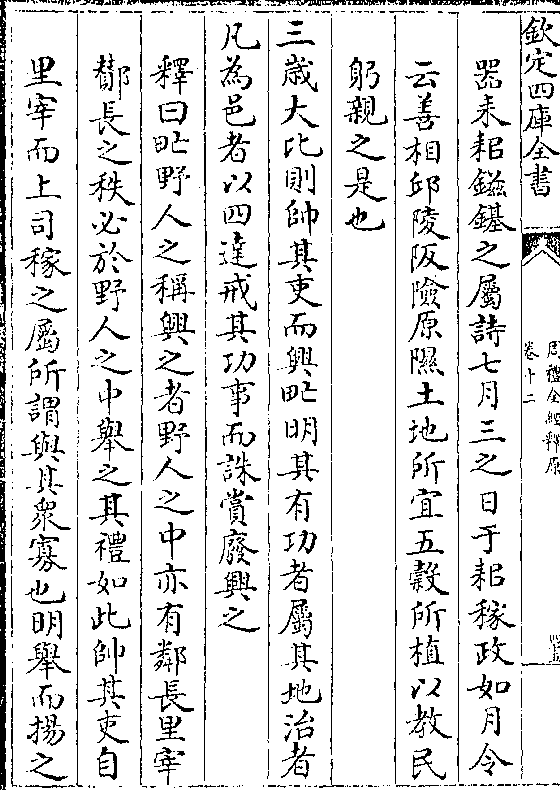 欽定四庫全書
周禮全經釋原
卷十二
器耒耜鎡鎛之屬詩七月三之日于耜稼政如月令
云善相邱陵阪險原隰土地所宜五穀所植以教民
躬親之是也
三歲大比則帥其吏而興甿明其有功者屬其地治者
凡為邑者以四達戒其功事而誅賞廢興之
釋曰甿野人之稱興之者野人之中亦有鄰長里宰
酇長之秩必於野人之中舉之其禮如此帥其吏自
里宰而上司稼之屬所謂與其眾寡也明舉而揚之